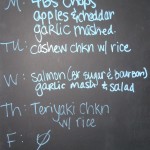 M: 4BS Chops
apples & cheddar
garlic mashed
TU: Cashew chkn w/ rice
W: Salmon (Br sugar & bourbon)
garlic mash & salad
Th: Teriyaki Chkn
w/ rice
F: Ø